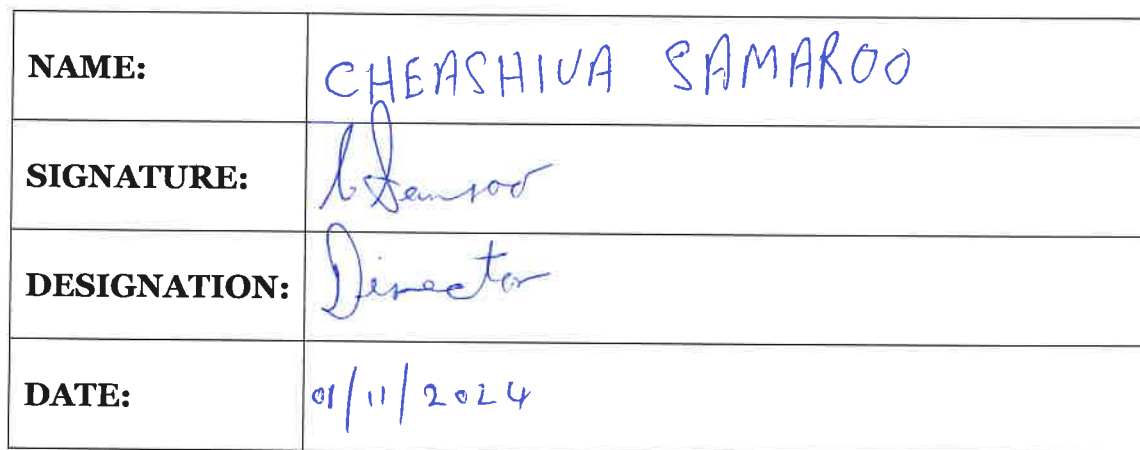 NAME: CHEASHIVA SAMAROO
SIGNATURE:
DESIGNATION: Director
DATE: 01/11/2024